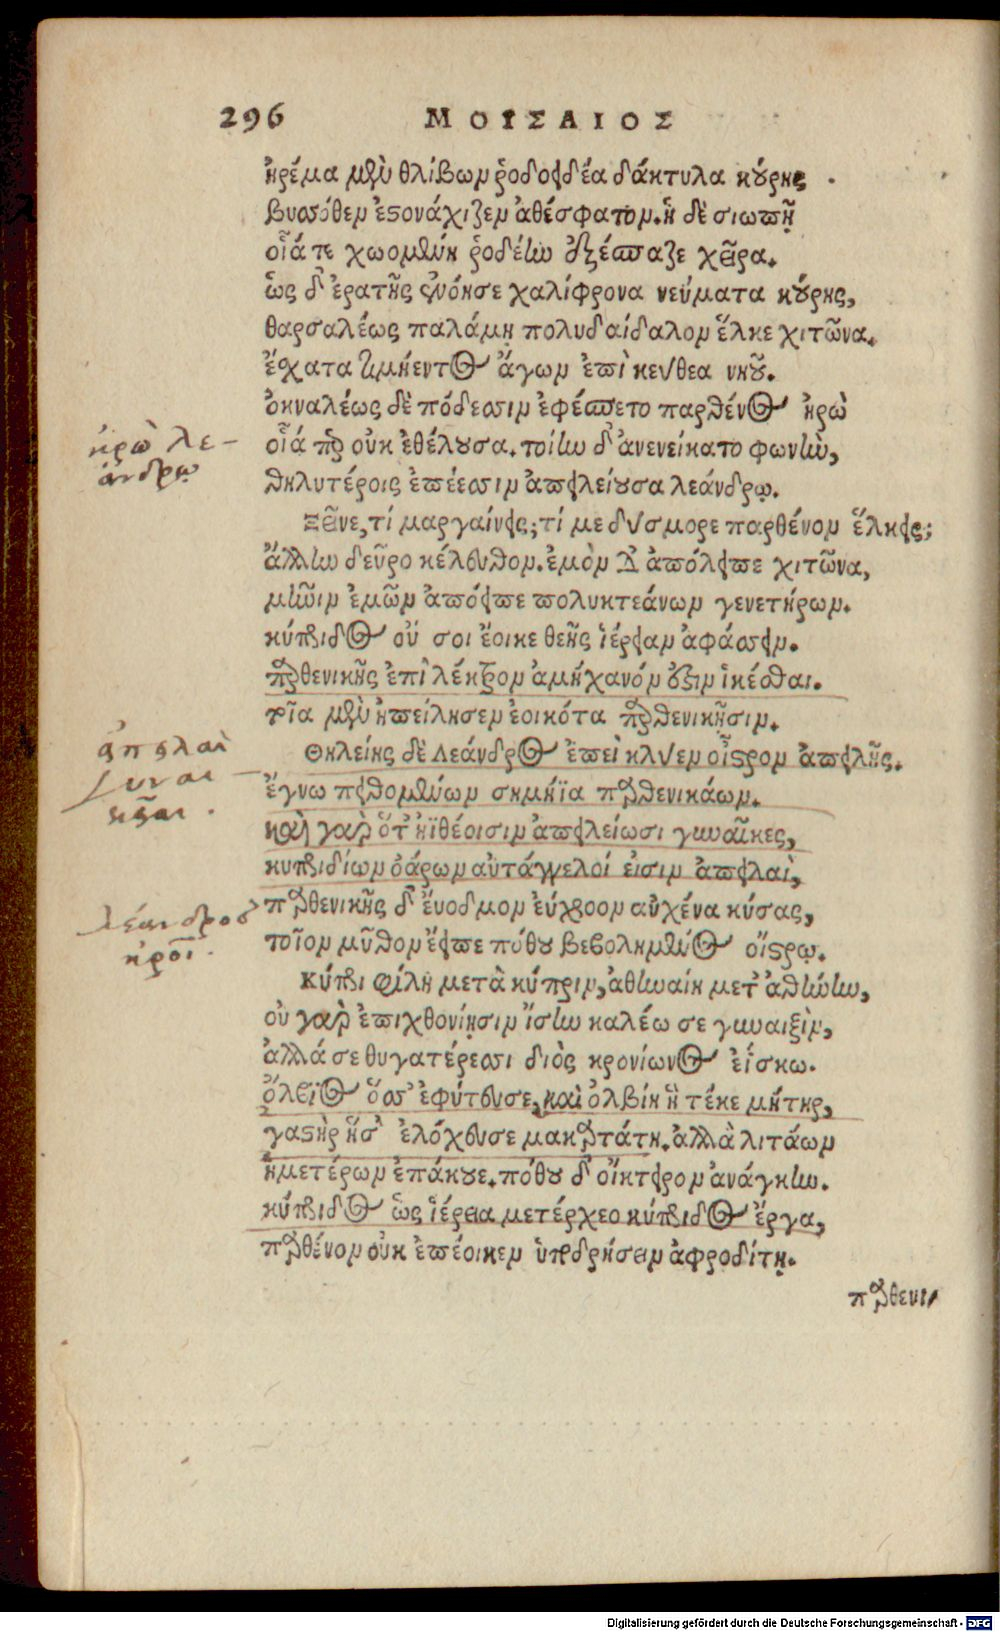 296 ΜΟΥΣΑΙΟΣ
ἠρέμα μὲν θλίβων ῥοδοειδέα δάκτυλα κούρης.
βυσσόθεν ἐστονάχιζεν ἀθέσφατον. ἡ δὲ σιωπῇ
οἷά τε χωομένη ῥοδέην ἐξέσπασε χεῖρα.
ὡς δ' ἐρατῆς ἐνόησε χαλίφρονα νεύματα κούρης,
θαρσαλέως παλάμῃ πολυδαίδαλον ἕλκε χιτῶνα.
ἔσχατα τιμήεντος ἄγων ἐπὶ κεύθεα νηοῦ.
ὀκναλέως δὲ πόδεσσιν ἐφέσπετο παρθένος ἡρὼ
οἷά περ οὐκ ἐθέλουσα. τοίην δ' ἀνενείκατο φωνὴν,
θηλυτέροις ἐπέεσσιν ἀπειλείουσα λεάνδρῳ.
ἡρὼ λε-
άνδρῳ
Ξεῖνε, τί μαργαίνεις; τί με δύσμορε παρθένον ἕλκεις;
ἄλλην δεῦρο κέλευθον. ἐμὸν δ' ἀπόλειπε χιτῶνα,
μῆνιν ἐμῶν ἀπόειπε πολυκτεάνων γενετήρων.
κύπριδος οὔ σοι ἔοικε θεῆς ἱέρειαν ἀφάσσειν.
παρθενικῆς ἐπὶ λέκτρον ἀμήχανόν ἐστιν ἱκέσθαι.
τοῖα μὲν ἠπείλησεν ἐοικότα παρθενικῇσιν.
Θηλείης δὲ Λεάνδρος ἐπεὶ κλύεν οἶστρον ἀπειλῆς.
ἔγνω πειθομένων σημήϊα παρθενικάων.
καὶ γὰρ ὅτ' ἠϊθέοισιν ἀπειλείωσι γυναῖκες,
κυπριδίων ὀάρων αὐτάγγελοί εἰσιν ἀπειλαὶ,
ἀπειλαὶ
γυναι
κῶν.
παρθενικῆς δ' εὔοδμον εὔχροον αὐχένα κύσας,
τοῖον μῦθον ἔειπε πόθου βεβολημένος οἴστρῳ.
λέανδρος
ἡροῖ.
Κύπρι φίλη μετὰ κύπριν, ἀθηναίη μετ' ἀθήνην,
οὐ γὰρ ἐπιχθονίῃσιν ἴσην καλέω σε γυναιξὶν,
ἀλλά σε θυγατέρεσσι διὸς κρονίωνος ἐΐσκω.
ὄλβιος ὅς σ' ἐφύτευσε, καὶ ὀλβίη ἣ τέκε μήτηρ,
γαστὴρ ἥ σ' ἐλόχευσε μακαρτάτη. ἀλλὰ λιτάων
ἡμετέρων ἐπάκουε. πόθου δ' οἴκτειρον ἀνάγκην.
κύπριδος ὡς ἱέρεια μετέρχεο κύπριδος ἔργα,
παρθένον οὐκ ἐπέοικεν ὑποδρήσειν ἀφροδίτῃ.
παρθενι-
Digitalisierung gefördert durch die Deutsche Forschungsgemeinschaft - DFG